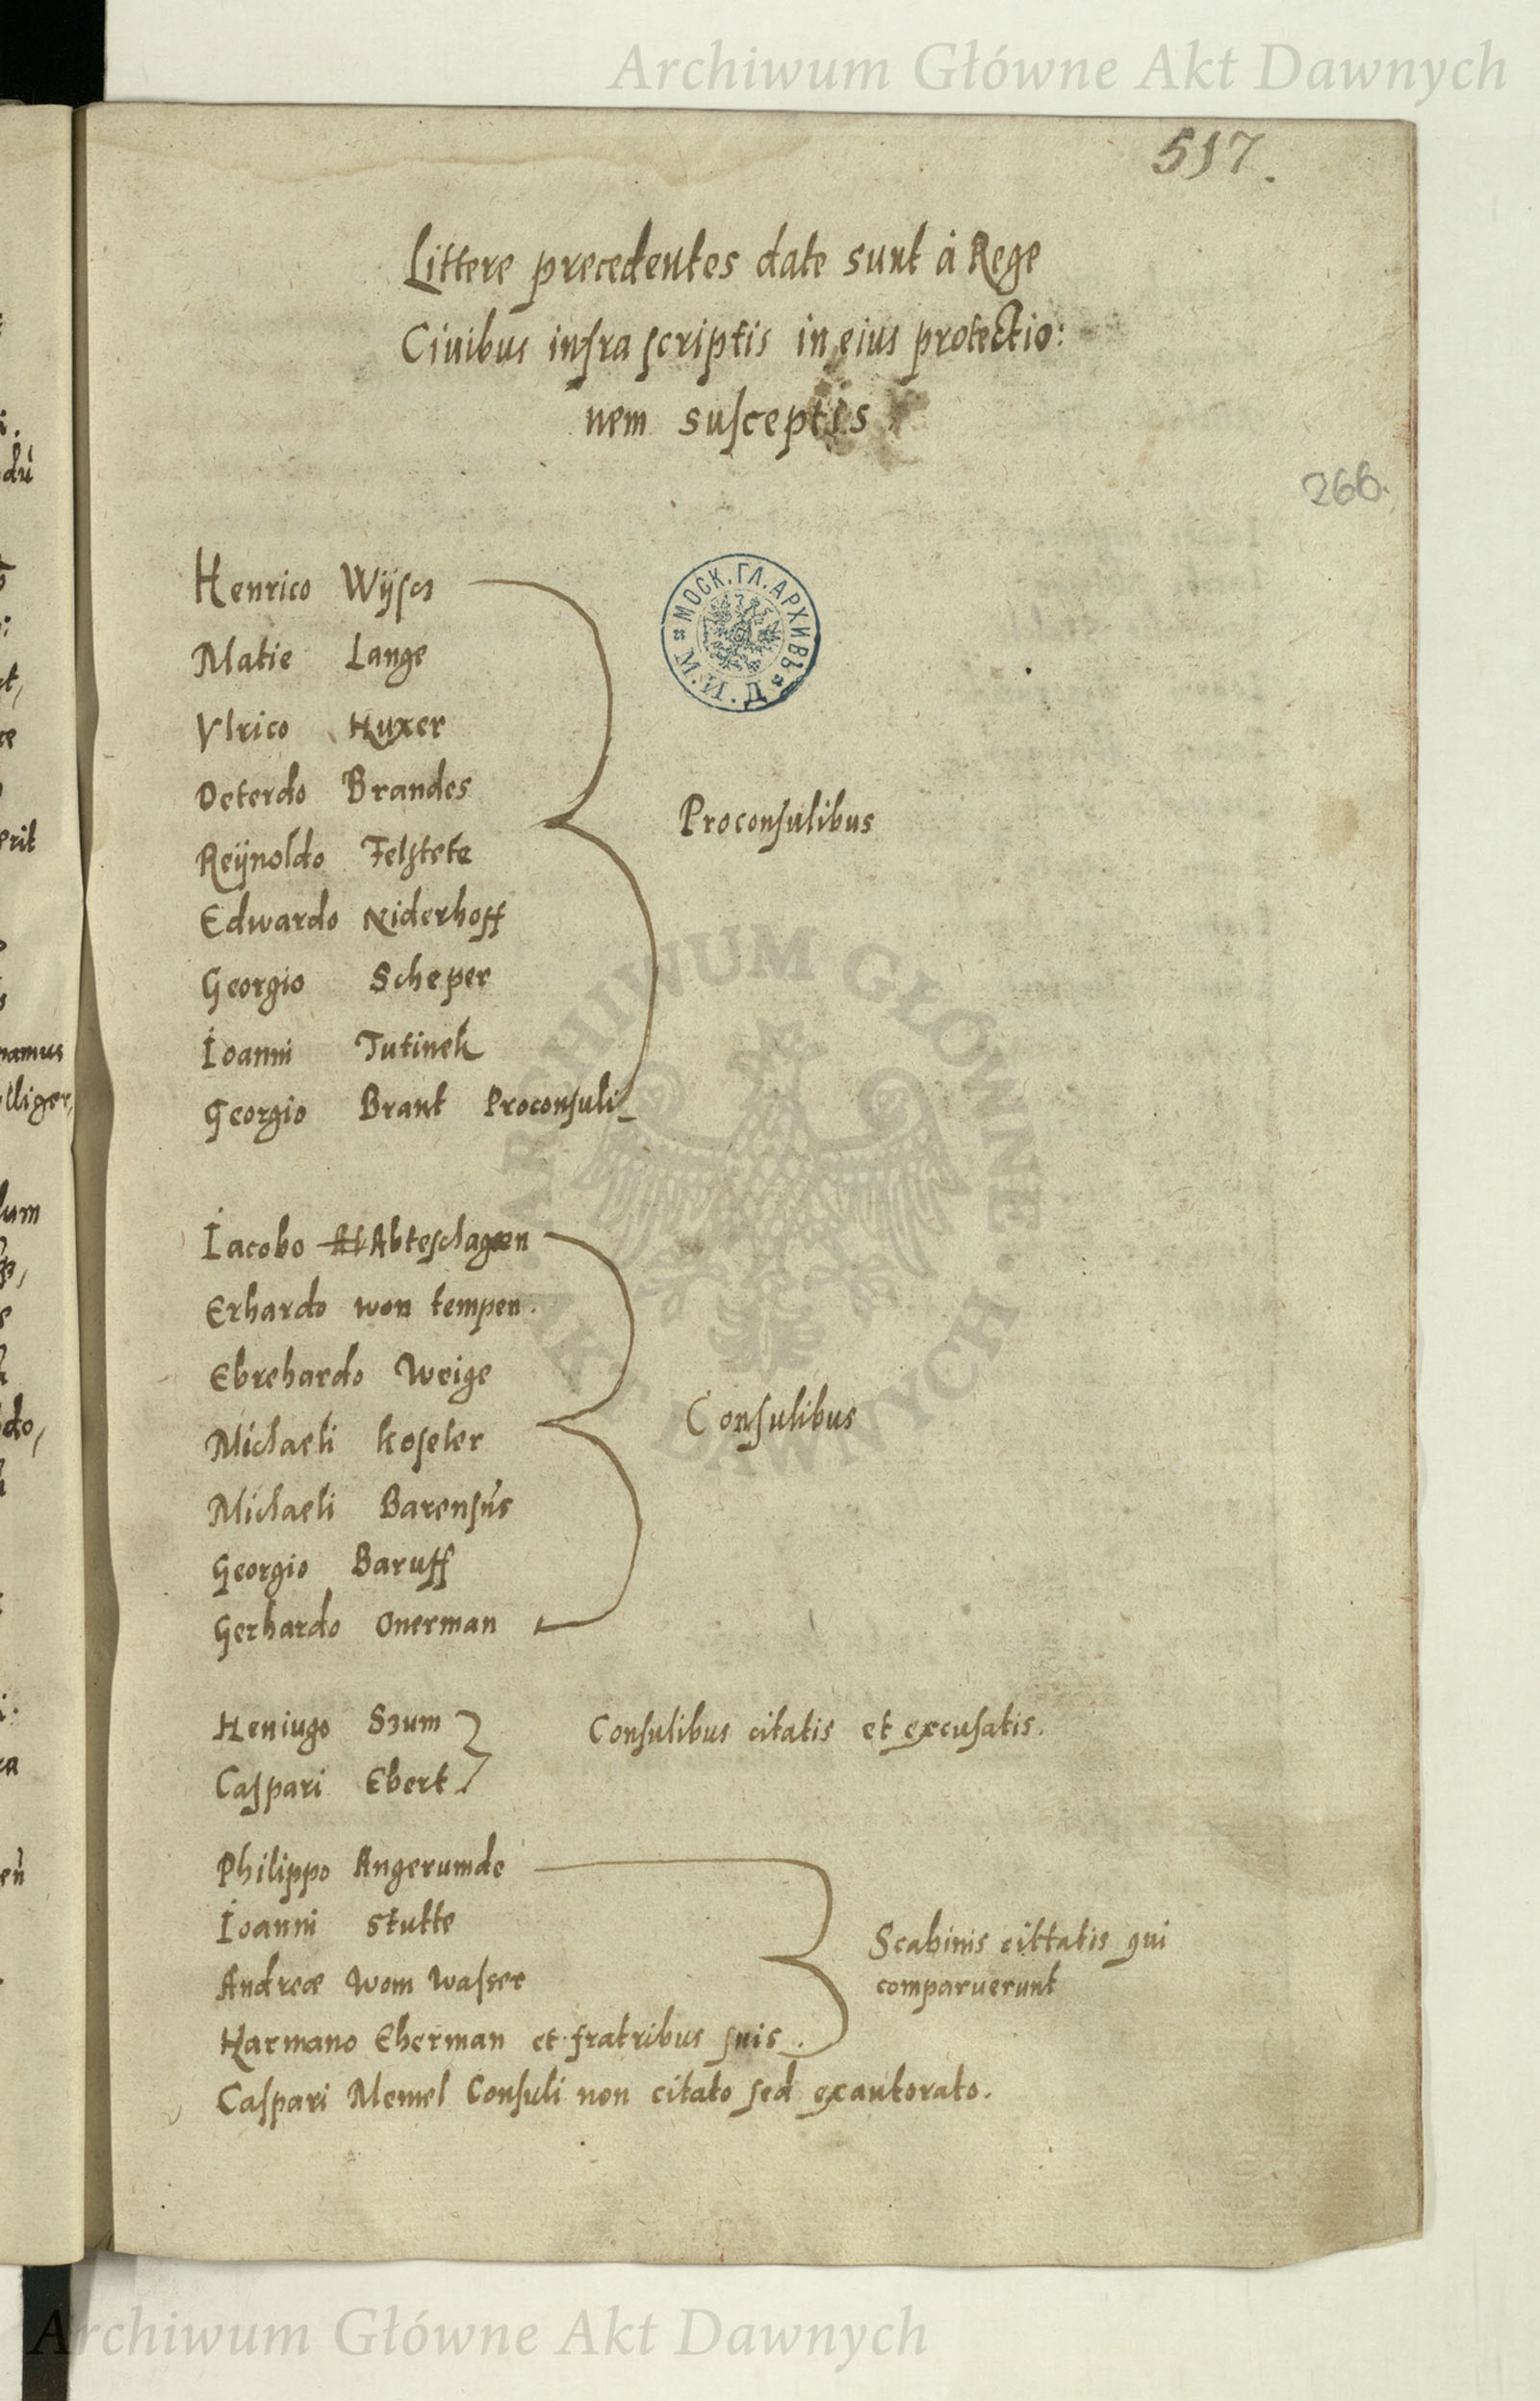 Archiwum Główne Akt Dawnych
517.
Littere precedentes date sunt à Rege
Ciuibus infra scriptis in eius protectio:
nem susceptis
266.
Henrico Wÿscs
Matie Lange
Vlrico Huxer
Deterdo Brandes
Reÿnoldo Felstete
Edwardo Niderhoff
Georgio Scheper
Ioanni Tutinek
Georgio Brant Proconsuli
Proconsulibus
МОСК. ГЛ. АРХИВЪ М. И. Д.
Iacobo Al Abteschagen
Erhardo won tempen.
Ebrehardo Weige
Michaeli koseler
Michaeli Barensus
Georgio Baruff
Gerhardo Onerman
Consulibus
Heniugo Szum
Caspari Ebert
Consulibus citatis et excusatis.
Philippo Angerumde
Ioanni Stutte
Andreæ Wom Wasser
Harmano Eherman et fratribus suis.
Scabinis cittatis qui
comparuerunt
Caspari Memel Consuli non citato sed exautorato.
ARCHIWUM GŁÓWNE AKT DAWNYCH
Archiwum Główne Akt Dawnych